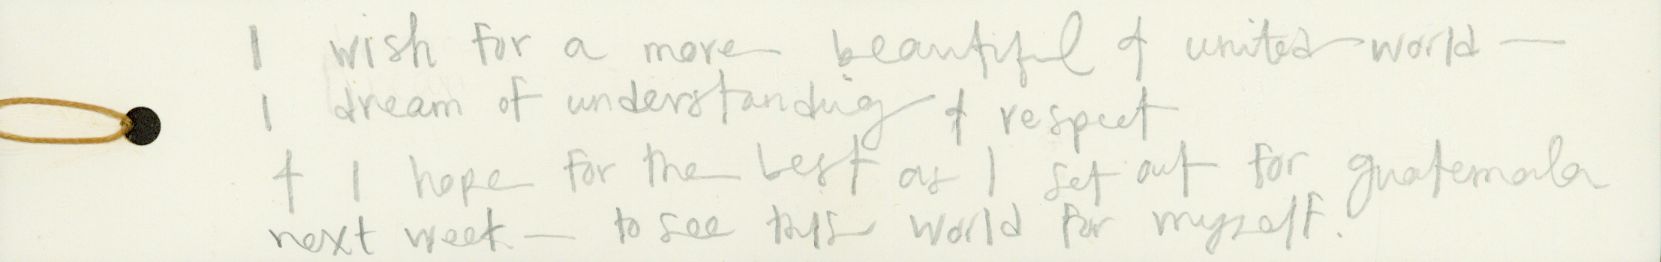 I wish for a more beautiful & united world —
I dream of understanding & respect
& I hope for the best as I set out for guatemala
next week — to see this world for myself.